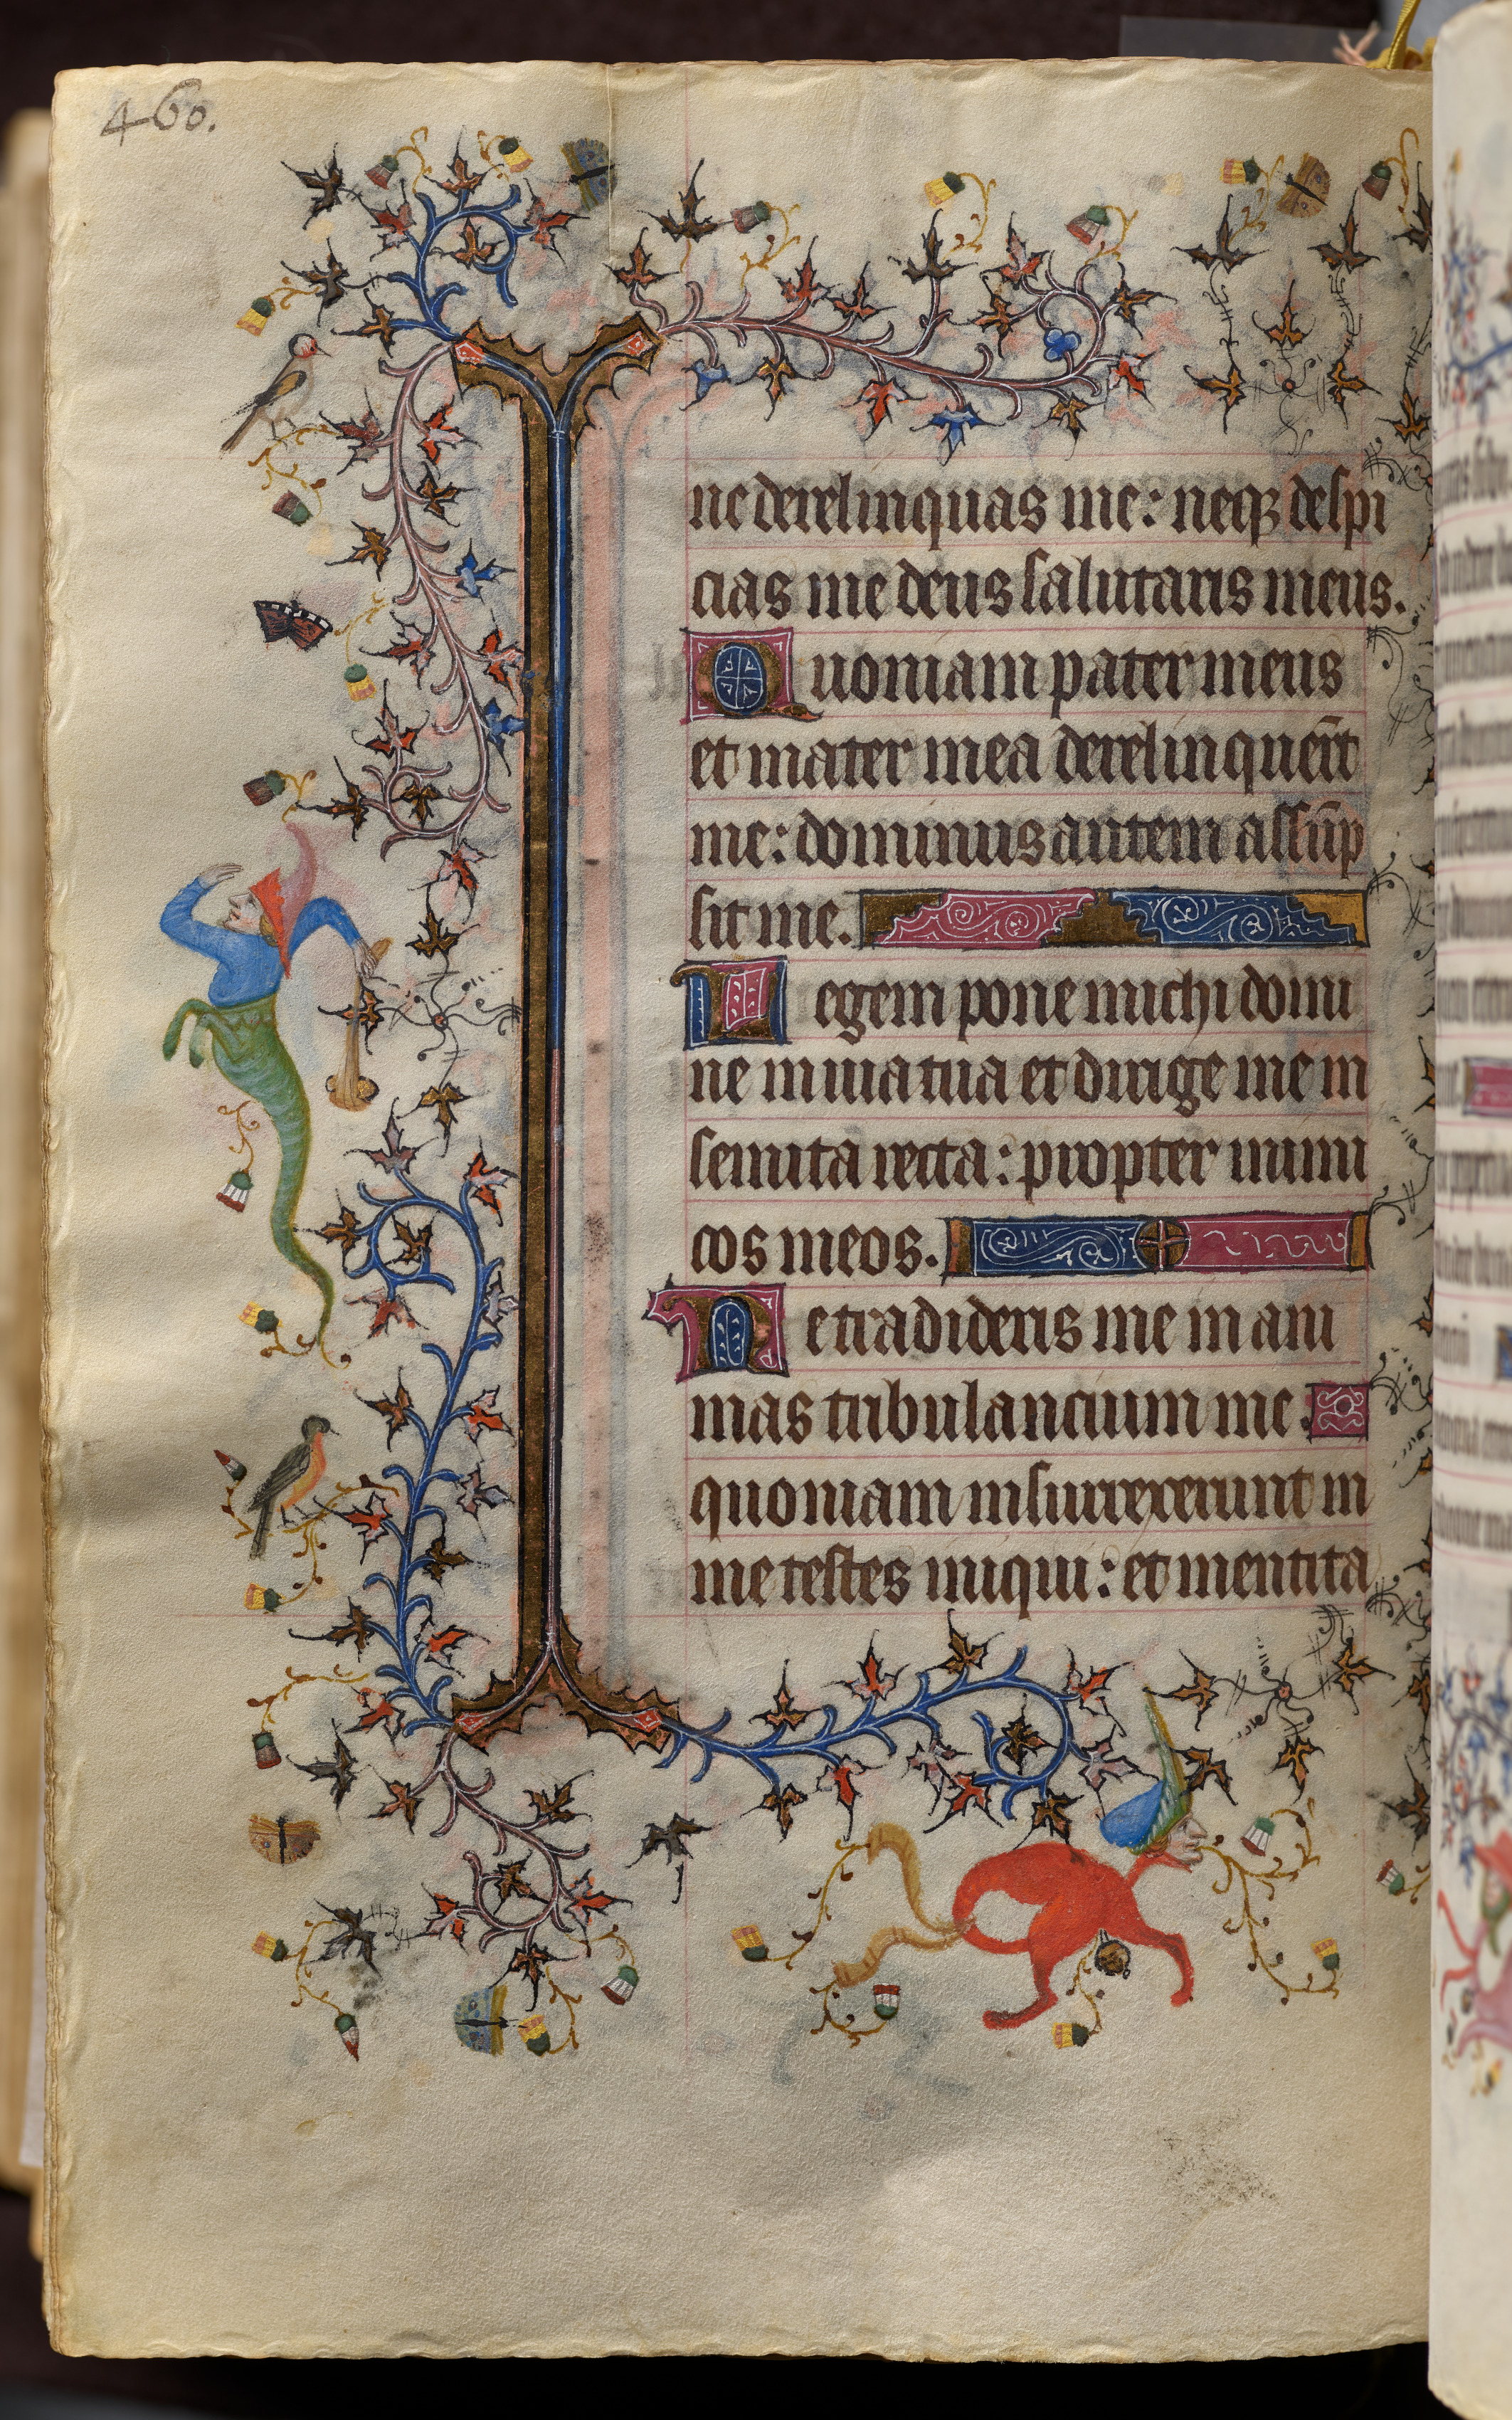 460.
ne derelinquas me: neqꝫ despi
cias me deus salutaris meus.
Quoniam pater meus
et mater mea derelinquer̄t
me: dominus autem assūp
sit me.
Legem pone michi domi
ne in uia tua et dirige me in
semita recta: propter inimi
cos meos.
Ne tradideris me in ani
mas tribulancium me.
quoniam insurrexerunt in
me testes iniqui: et mentita